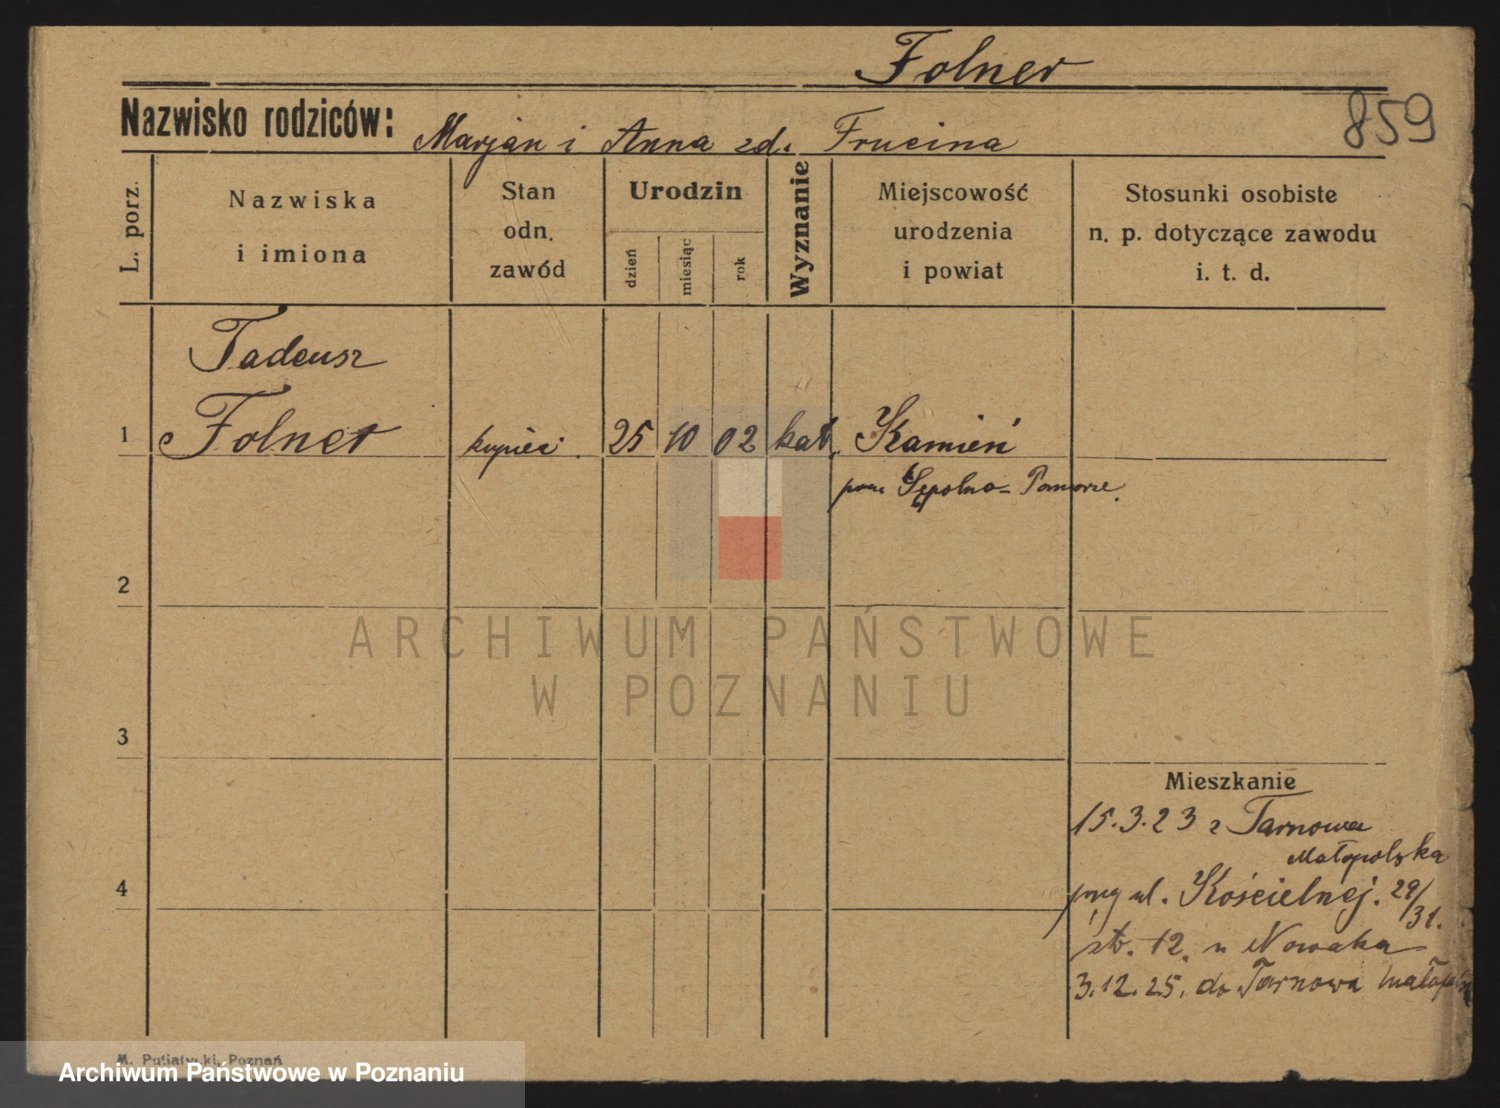 Folner
859
Nazwisko rodziców: Marjan i Anna zd. Frucina
L. porz.
Nazwiska
i imiona
Stan
odn.
zawód
Urodzin
dzień
miesiąc
rok
Wyznanie
Miejscowość
urodzenia
i powiat
Stosunki osobiste
n. p. dotyczące zawodu
i. t. d.
Tadeusz
1 Folner kupiec 25 10 02 kat. Kamień
pow Sępolno - Pomorze.
2
ARCHIWUM PAŃSTWOWE
W POZNANIU
3
Mieszkanie
15.3.23 z Tarnowa
Małopolska
4
przy ul. Kościelnej. 29/31.
str. 12. u Nowaka
3.12.25. do Tarnowa Małopol
M. Putiatycki, Poznań
Archiwum Państwowe w Poznaniu